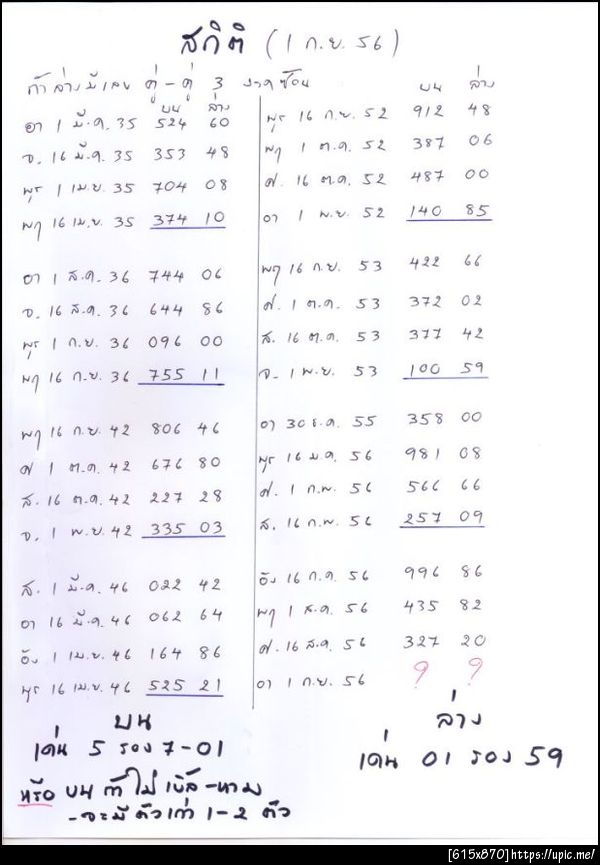 สถิติ (1 ก.ย. 56)
ถ้าล่างมีเลข คู่-คู่ 3 งวดซ้อน
บน ล่าง
อา 1 มี.ค. 35 524 60
จ. 16 มี.ค. 35 353 48
พุธ 1 เม.ย. 35 704 08
พฤ 16 เม.ย. 35 374 10
อา 1 ส.ค. 36 744 06
จ. 16 ส.ค. 36 644 86
พุธ 1 ก.ย. 36 096 00
พฤ 16 ก.ย. 36 755 11
พฤ 16 ก.ย. 42 806 46
ศ 1 ต.ค. 42 676 80
ส. 16 ต.ค. 42 227 28
จ. 1 พ.ย. 42 335 03
ส. 1 มี.ค. 46 022 42
อา 16 มี.ค. 46 062 64
อัง 1 เม.ย. 46 164 86
พุธ 16 เม.ย. 46 525 21
บน ล่าง
พุธ 16 ก.ย. 52 912 48
พฤ 1 ต.ค. 52 387 06
ศ. 16 ต.ค. 52 487 00
อา 1 พ.ย. 52 140 85
พฤ 16 ก.ย. 53 422 66
ศ. 1 ต.ค. 53 372 02
ส. 16 ต.ค. 53 377 42
จ. 1 พ.ย. 53 100 59
อา 30 ธ.ค. 55 358 00
พุธ 16 ม.ค. 56 981 08
ศ. 1 ก.พ. 56 566 66
ส. 16 ก.พ. 56 257 09
อัง 16 ก.ค. 56 996 86
พฤ 1 ส.ค. 56 435 82
ศ. 16 ส.ค. 56 327 20
อา 1 ก.ย. 56 ? ?
บน
เด่น 5 รอง 7-01
หรือ บน ถ้าไม่เบิ้ล-หาม
-จะมีตัวเก่า 1-2 ตัว
ล่าง
เด่น 01 รอง 59
[615x870]https://upic.me/